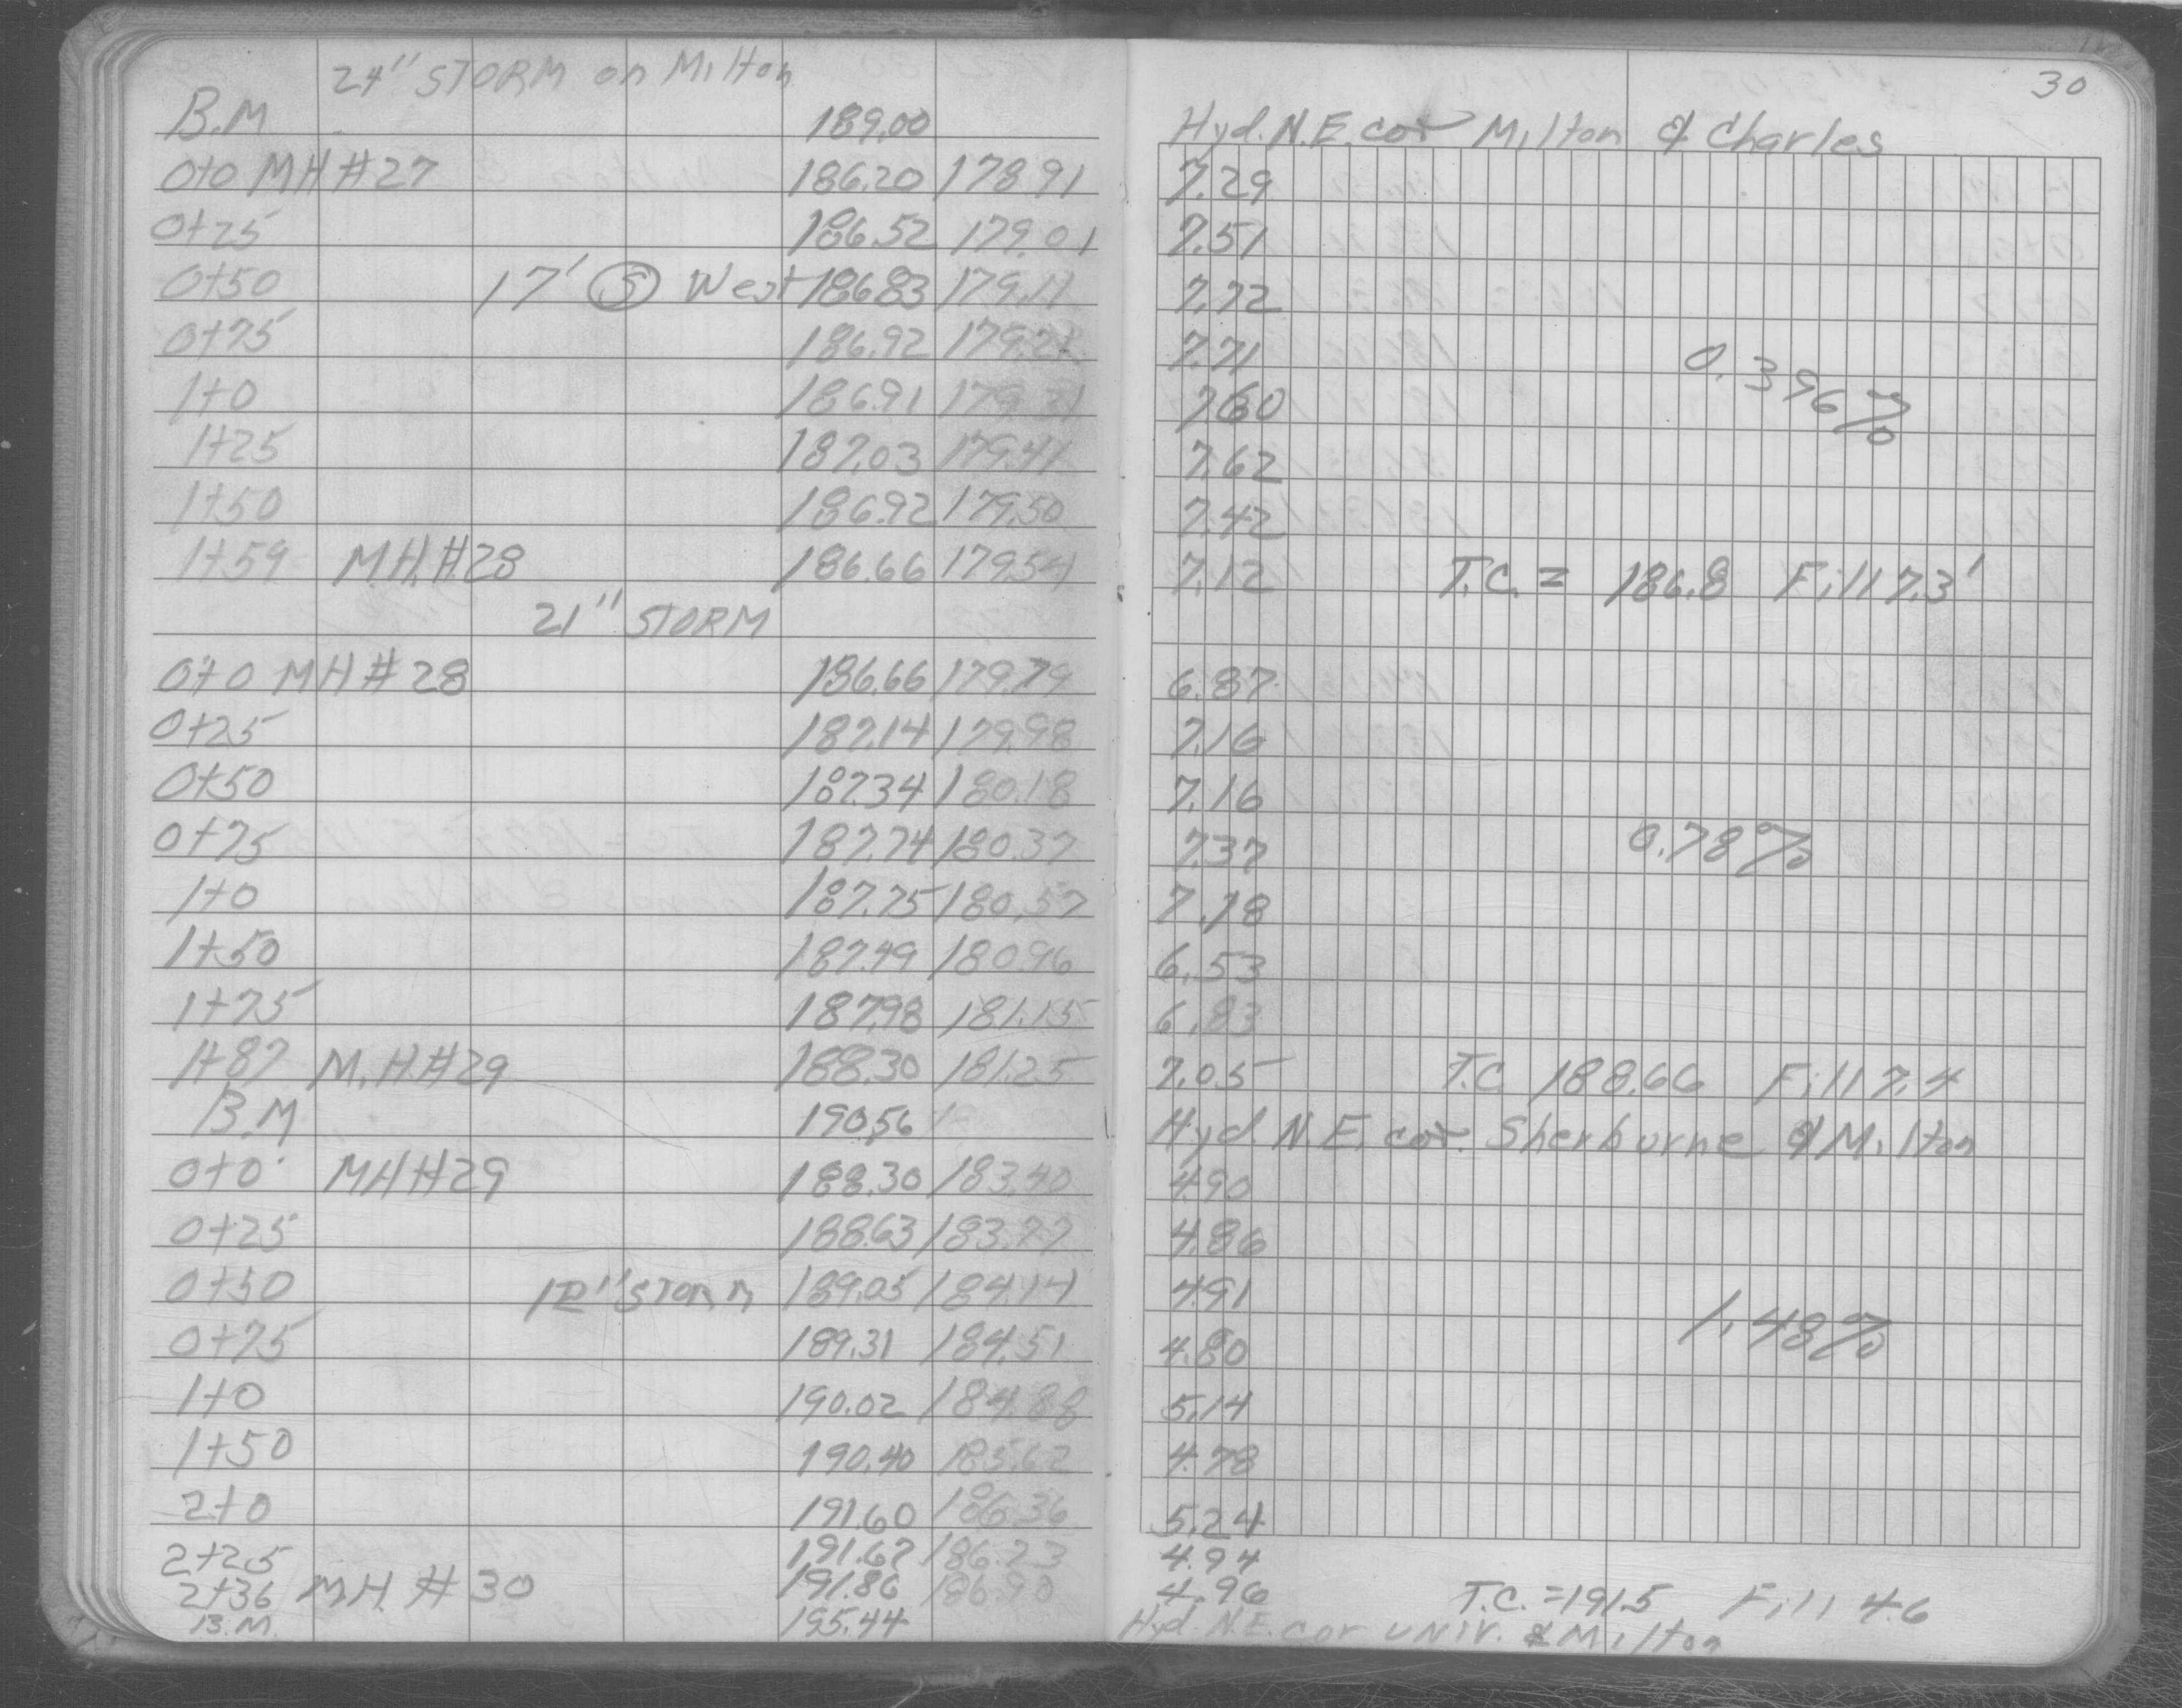 30
24" STORM on Milton
B.M 189.00 Hyd. N.E. cor Milton & Charles
0+0 MH #27 186.20 178.91 7.29
0+25 186.52 179.01 7.51
0+50 17' Ⓢ West 186.83 179.11 7.72
0+75 186.92 179.21 7.71
0.396%
1+0 186.91 179.31 7.60
1+25 187.03 179.41 7.62
1+50 186.92 179.50 7.42
1+59 M.H. #28 186.66 179.54 7.12 T.C. = 186.8 Fill 7.3'
21" STORM
0+0 MH #28 186.66 179.79 6.87
0+25 187.14 179.98 7.16
0+50 187.34 180.18 7.16
0+75 187.74 180.37 7.37 0.78%
1+0 187.75 180.57 7.18
1+50 187.49 180.96 6.53
1+75 187.98 181.15 6.83
1+87 M.H #29 188.30 181.25 7.05 T.C. 188.66 Fill 7.4
B.M 190.56 Hyd. N.E. cor. Sherburne & Milton
0+0 MH #29 188.30 183.40 4.90
0+25 188.63 183.77 4.86
0+50 12" STORM 189.05 184.14 4.91
1.48%
0+75 189.31 184.51 4.80
1+0 190.02 184.88 5.14
1+50 190.40 185.62 4.78
2+0 191.60 186.36 5.24
2+25 191.67 186.73 4.94
2+36 M.H. #30 191.86 186.90 4.96 T.C. = 191.5 Fill 4.6
B.M. 195.44 Hyd. N.E. cor Univ. & Milton